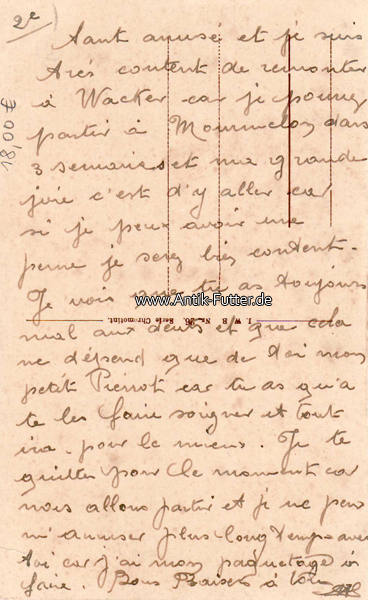 2e
18,00 €
tant amusé et je suis
trés content de remonter
à Wacker car je pourrez
partir à Mourmelon dans
3 semaines et ma grande
joie c'est d'y aller car
si je peux avoir une
perme je serez bien content.
Je vois que tu as toujours
www.Antik-Futter.de
I. W. B. No. 26. Serie Chromotint.
mal aux dents et que cela
ne dépend que de toi mon
petit Pierrot car tu as qu'a
te les faire soigner et tout
ira pour le mieux. Je te
quittes pour le moment car
nous allons partir et je ne peux
m'amuser plus longtemps avec
toi car j'ai mon paquetage à
faire. Bons Baisers à